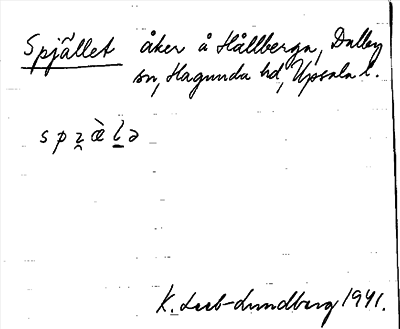 Spjället åker å Hållberga, Dalby
sn, Hagunda hd, Upsala l.
s p ı̯ æ̀ l̲ ə
K. Leeb-Lundberg 1941.